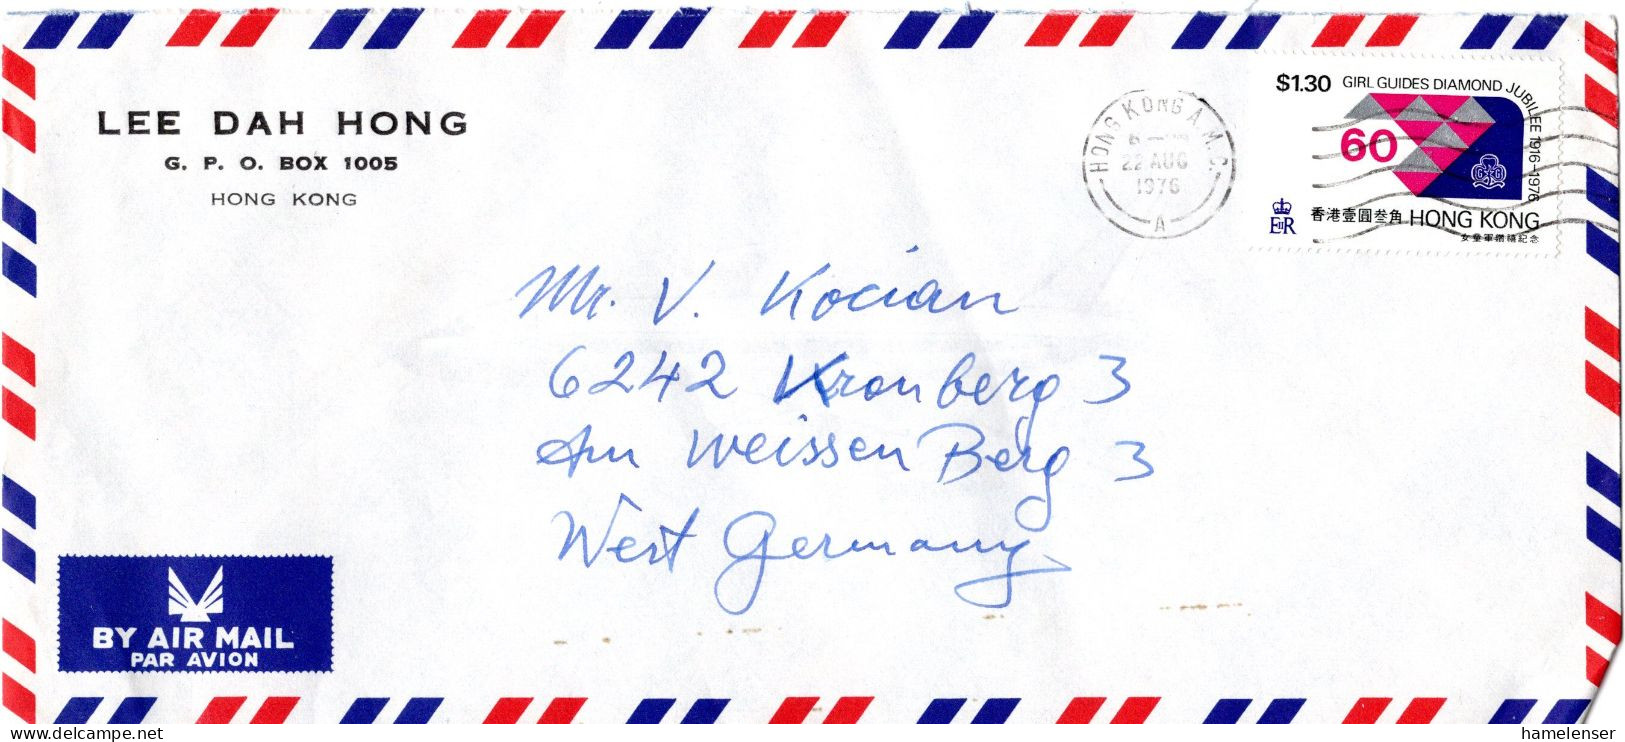 LEE DAH HONG
G. P. O. BOX 1005
HONG KONG
HONG KONG A.M.C.
22 AUG
1976
A
$1.30 GIRL GUIDES DIAMOND JUBILEE 1916-1976
60
EIIR
香港壹圓叁角 HONG KONG
女童軍鑽禧紀念
Mr. V. Kocian
6242 Kronberg 3
Am Weissen Berg 3
West Germany
BY AIR MAIL
PAR AVION
delcampe.net
hamelenser